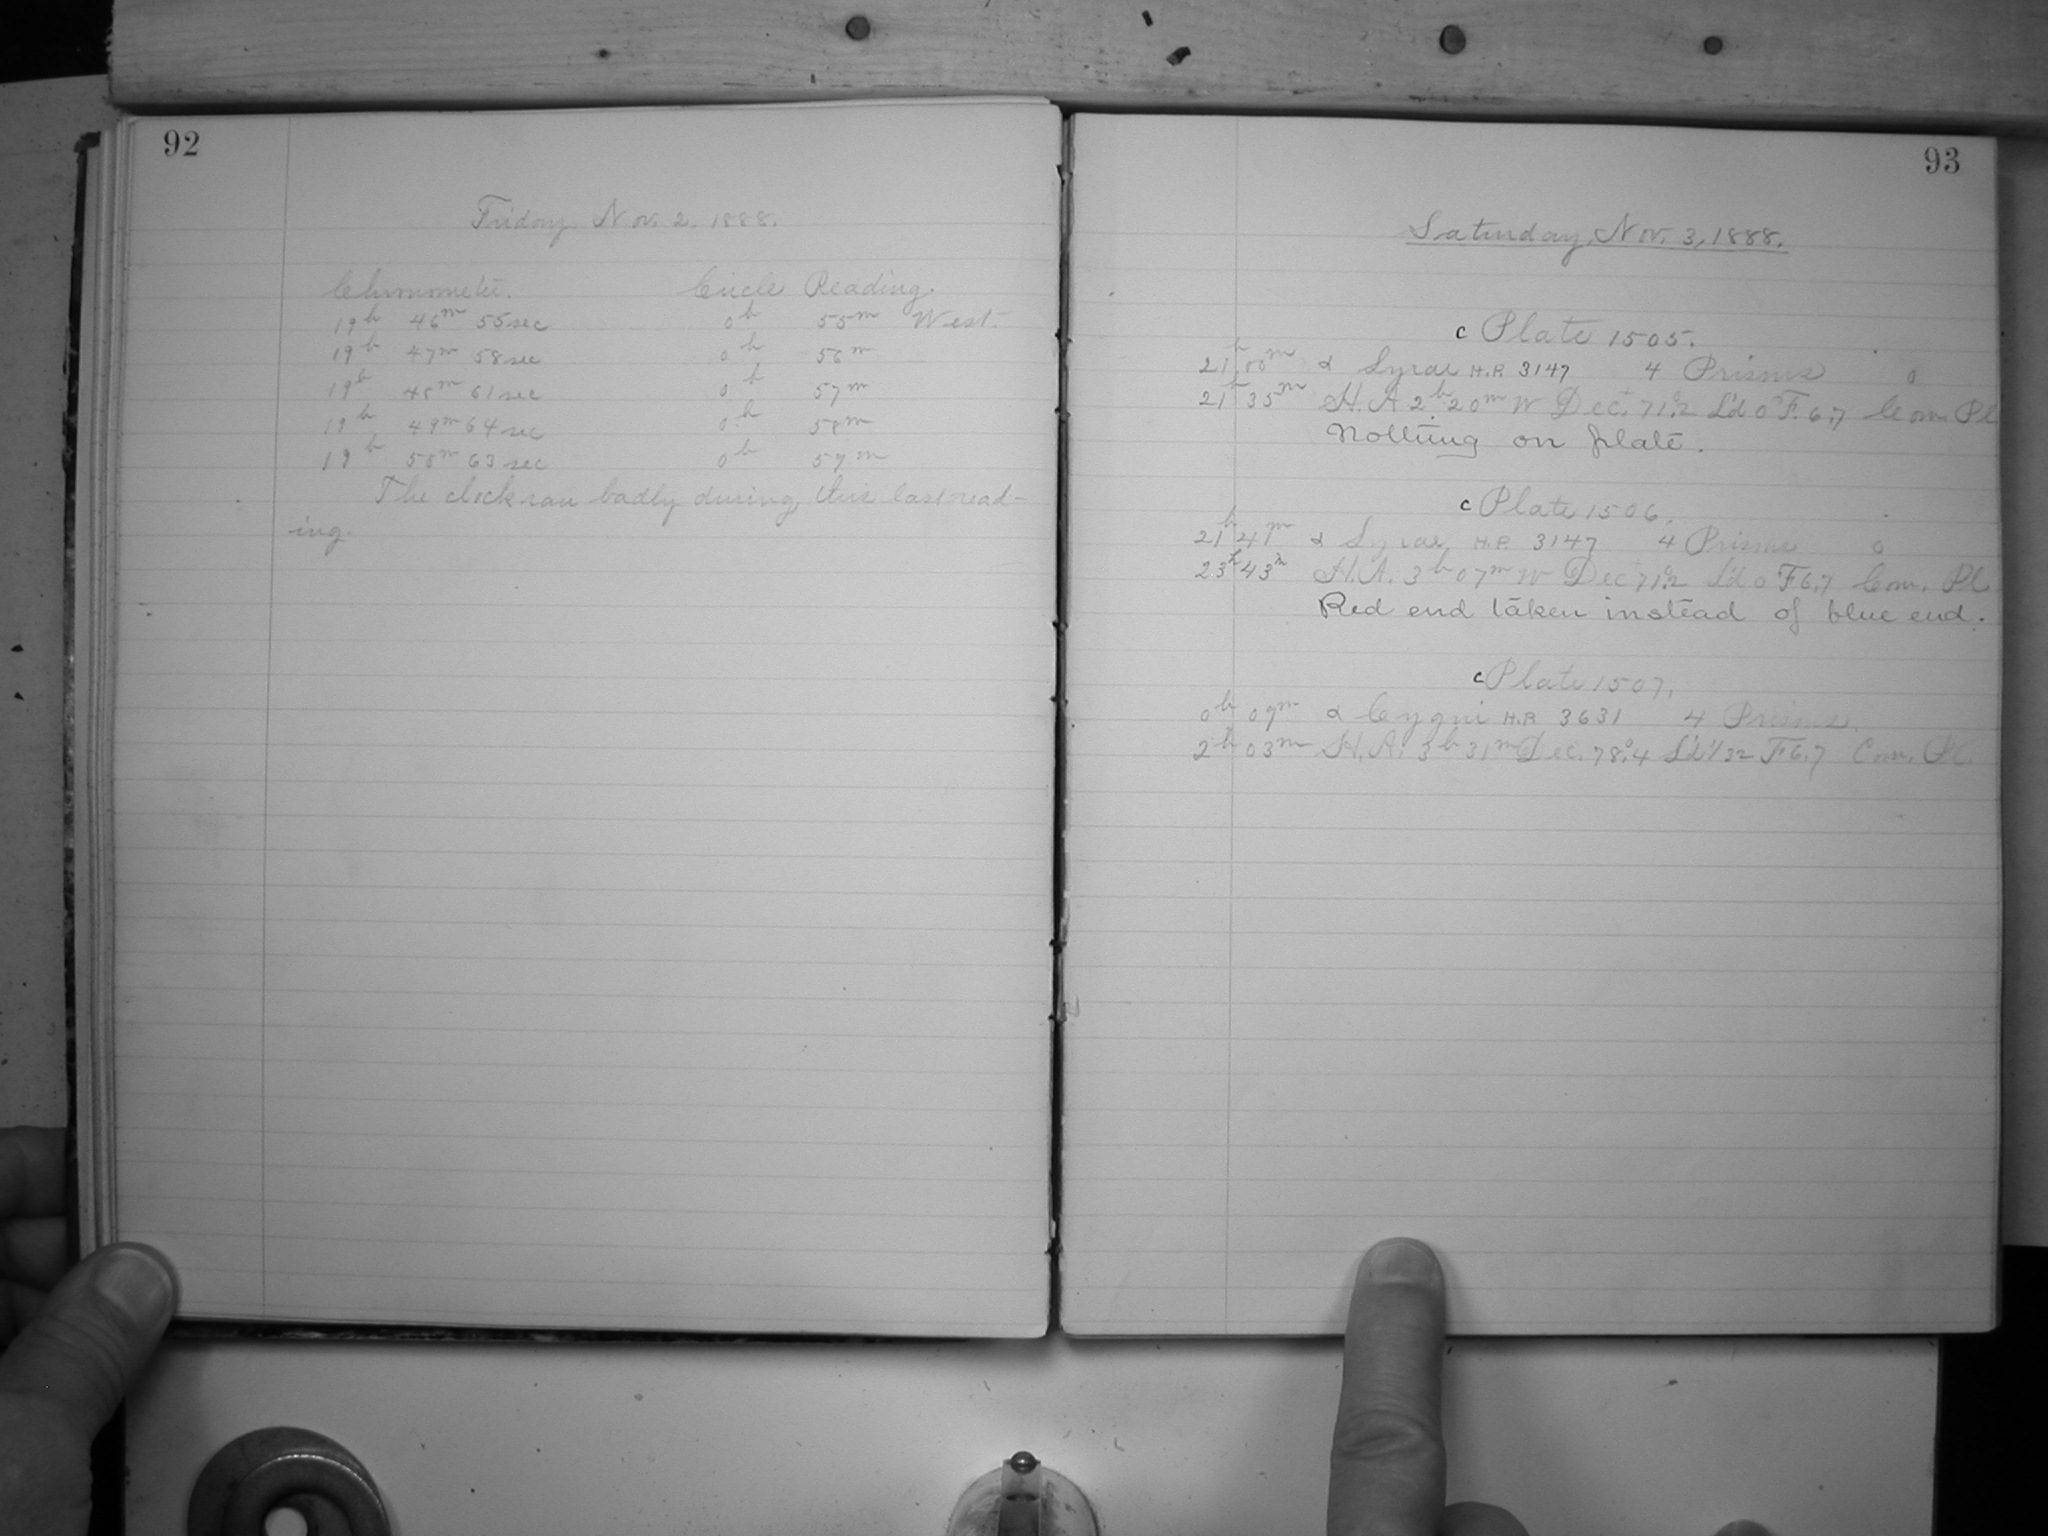 92
Friday, Nov. 2, 1888.
Chronometer. Circle Reading.
19h 46m 55sec 0h 55m West.
19h 47m 58sec 0h 56m
19h 48m 61sec 0h 57m
19h 49m 64sec 0h 58m
19h 50m 63sec 0h 59m
The clock ran badly during this last read-
ing.
93
Saturday, Nov. 3, 1888.
c Plate 1505.
21h 00m α Lyrae H.P. 3147 4 Prisms 0
21h 35m H.A 2h 20m W Dec. + 71°.2 L'd 0 F. 6.7 Com. Pl
Nothing on plate.
c Plate 1506.
21h 41m α Lyrae H.P. 3147 4 Prisms 0
23h 43m H.A. 3h 07m W Dec + 71°.2 L'd 0 F 6.7 Com. Pl
Red end taken instead of blue end.
c Plate 1507.
0h 09m α Cygni H.P. 3631 4 Prisms.
2h 03m H.A. 3h 31m Dec. 78°.4 L'd 1/32 F 6.7 Com. Pl